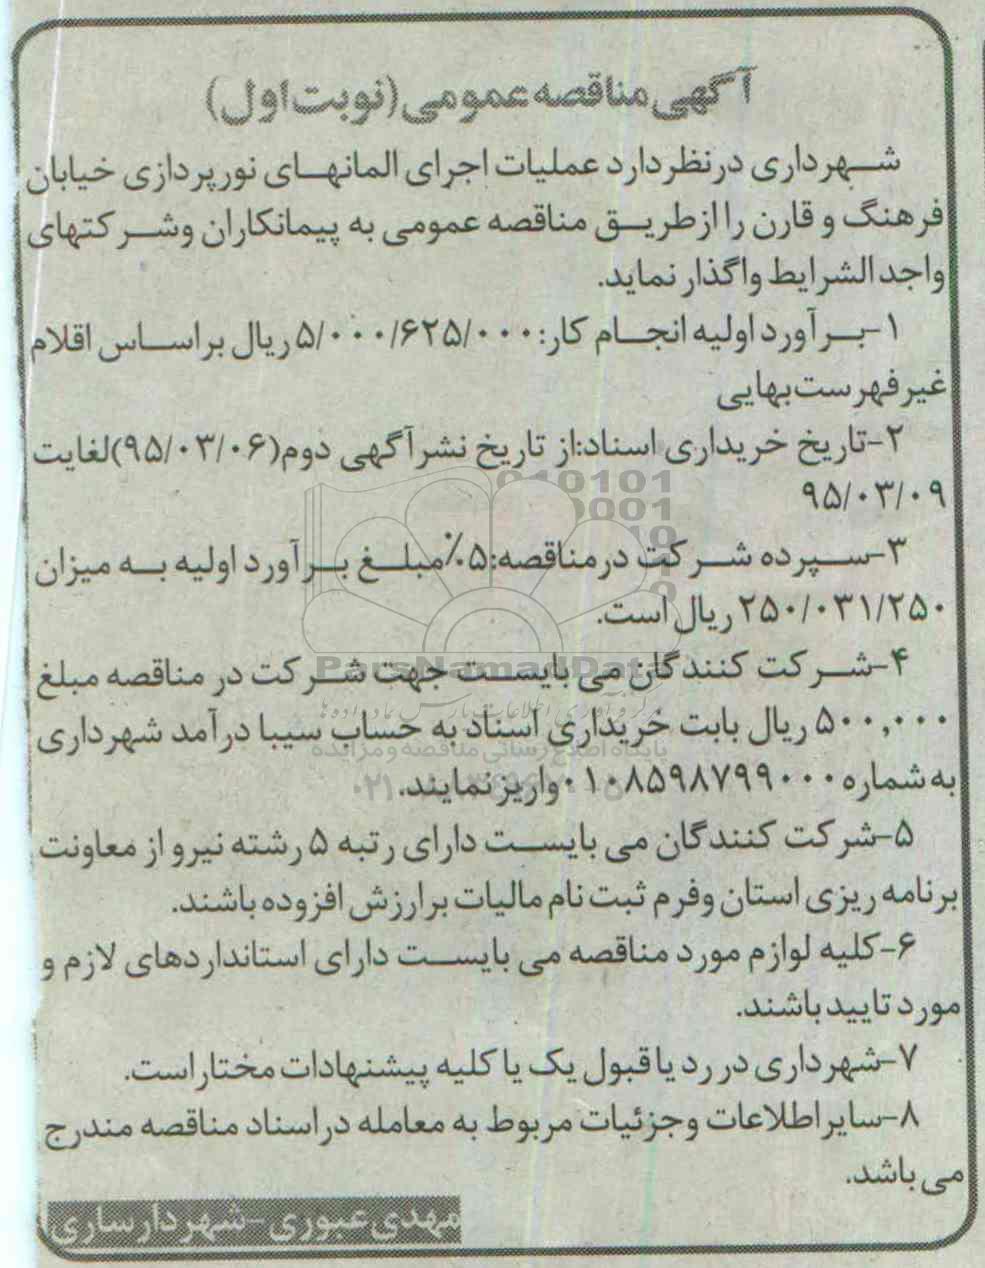 آگهی مناقصه عمومی (نوبت اول)
شهرداری درنظردارد عملیات اجرای المانهای نورپردازی خیابان
فرهنگ و قارن را ازطریق مناقصه عمومی به پیمانکاران وشرکتهای
واجدالشرایط واگذار نماید.
۱-برآورد اولیه انجام کار: ۵/۰۰۰/۶۲۵/۰۰۰ ریال براساس اقلام
غیرفهرست‌بهایی
۲-تاریخ خریداری اسناد:از تاریخ نشرآگهی دوم(۹۵/۰۳/۰۶)لغایت
۹۵/۰۳/۰۹
۳-سپرده شرکت درمناقصه:۵٪مبلغ برآورد اولیه به میزان
۲۵۰/۰۳۱/۲۵۰ ریال است.
۴-شرکت کنندگان می بایست جهت شرکت در مناقصه مبلغ
۵۰۰,۰۰۰ ریال بابت خریداری اسناد به حساب سیبا درآمد شهرداری
به شماره ۰۱۰۸۵۹۸۷۹۹۰۰۰ واریز نمایند.
۵-شرکت کنندگان می بایست دارای رتبه ۵ رشته نیرو از معاونت
برنامه ریزی استان وفرم ثبت نام مالیات برارزش افزوده باشند.
۶-کلیه لوازم مورد مناقصه می بایست دارای استانداردهای لازم و
مورد تایید باشند.
۷-شهرداری در رد یا قبول یک یا کلیه پیشنهادات مختار است.
۸-سایر اطلاعات وجزئیات مربوط به معامله در اسناد مناقصه مندرج
می باشد.
مهدی عبوری-شهردارساری
ParsNamadData
پایگاه اطلاع رسانی مناقصه و مزایده